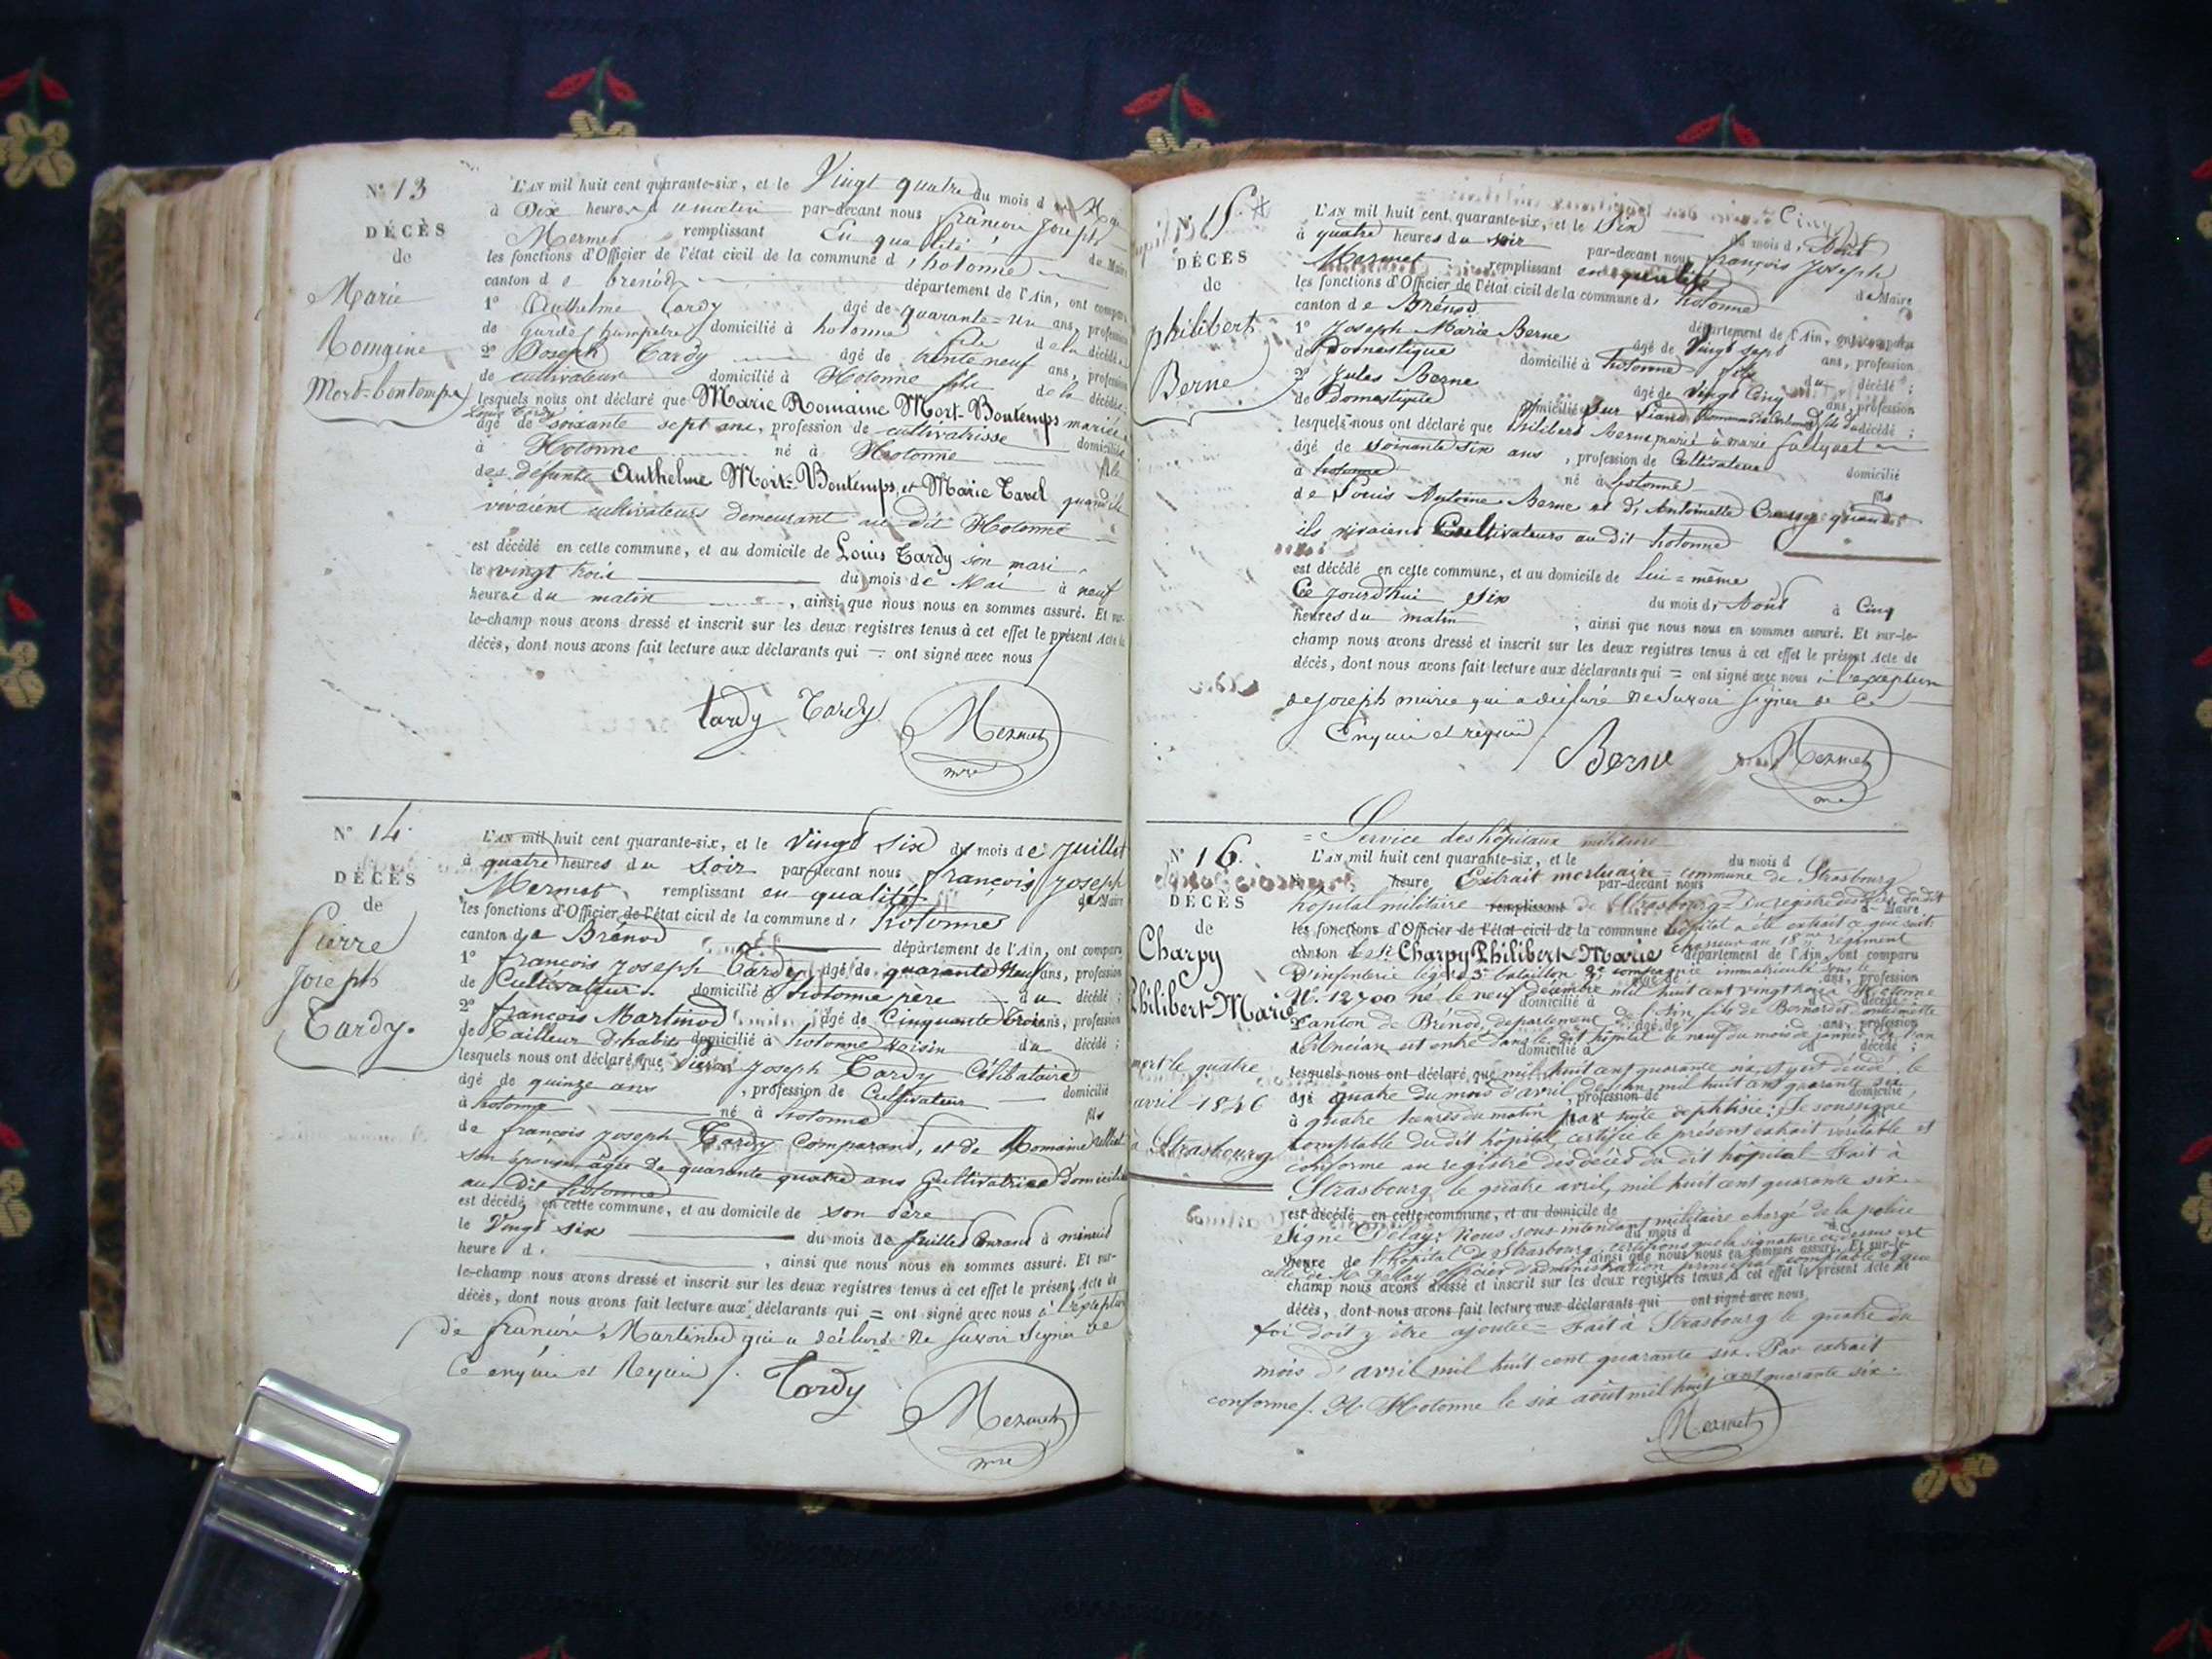 N° 13
DÉCÈS
de
Marie
Romaine
Mort-bontemps
L'AN mil huit cent quarante-six, et le Vingt quatre du mois de Mai
à Dix heures du matin par-devant nous françois joseph
Mermet remplissant En qualité de Maire
les fonctions d'Officier de l'état civil de la commune d'hotonne
canton de brenod département de l'Ain, ont comparu
1° Anthelme Tardy âgé de quarante-un ans, profession
de garde champetre domicilié à hotonne fils de la décédée
2° Joseph Tardy âgé de trente neuf ans, profession
de cultivateur domicilié à Hotonne fils de la décédée
lesquels nous ont déclaré que Marie Romaine Mort-Bontemps mariée à
Louis Tardy
âgé de soixante sept ans, profession de cultivatrisse domicilié
à Hotonne né à Hotonne fille
des défunts Anthelme Mort-Bontemps et Marie Tavel quand ils
vivaient cultivateurs demeurant au dit Hotonne
est décédé en cette commune, et au domicile de Louis Tardy son mari
le vingt trois du mois de Mai à neuf
heures du matin, ainsi que nous nous en sommes assuré. Et sur-
le-champ nous avons dressé et inscrit sur les deux registres tenus à cet effet le présent Acte de
décès, dont nous avons fait lecture aux déclarants qui = ont signé avec nous
tardy Tardy Mermet
mre
N° 14.
DÉCÈS
de
Pierre
joseph
Tardy.
L'AN mil huit cent quarante-six, et le vingt six du mois de juillet
à quatre heures du soir par-devant nous françois joseph
Mermet remplissant en qualité de Maire
les fonctions d'Officier de l'état civil de la commune d' hotonne
canton de Brénod département de l'Ain, ont comparu
1° françois joseph Tardy âgé de quarante neuf ans, profession
de Cultivateur domicilié à hotonne père du décédé ;
2° françois Martinod âgé de Cinquante trois ans, profession
de Tailleur d'habits domicilié à hotonne voisin du décédé ;
lesquels nous ont déclaré que Pierre joseph Tardy Célibataire
âgé de quinze ans, profession de Cultivateur domicilié
à hotonne né à hotonne fils
de françois joseph Tardy Comparant, et de Romaine
son épouse, âgée de quarante quatre ans Cultivatrice domiciliée
au dit hotonne
est décédé en cette commune, et au domicile de son père
le Vingt six du mois de juillet Courant à minuit
heure d. , ainsi que nous nous en sommes assuré. Et sur-
le-champ nous avons dressé et inscrit sur les deux registres tenus à cet effet le présent Acte de
décès, dont nous avons fait lecture aux déclarants qui = ont signé avec nous à l'exception
de françois Martinod qui a déclaré ne savoir signer de
ce enquis et Requis /. Tardy Mermet
mre
N° 15.
DÉCÈS
de
philibert
Berne
L'AN mil huit cent quarante-six, et le Six du mois d'Août
à quatre heures du soir par-devant nous françois joseph
Mermet remplissant en qualité de Maire
les fonctions d'Officier de l'état civil de la commune d' hotonne
canton de Brénod département de l'Ain, ont comparu
1° Joseph Marie Berne âgé de Vingt sept ans, profession
de Domestique domicilié à hotonne fils du décédé ;
2° Jules Berne âgé de Vingt Cinq ans, profession
de Domestique domicilié sur fils du décédé ;
lesquels nous ont déclaré que philibert berne marié à marie
âgé de soixante six ans, profession de Cultivateur domicilié
à hotonne né à hotonne fils
de Louis Antoine Berne et d'Antoinette quand
ils vivaient Cultivateurs au dit hotonne
est décédé en cette commune, et au domicile de Lui-même
Ce jourd'hui six du mois d'Août à Cinq
heures du matin ; ainsi que nous nous en sommes assuré. Et sur-le-
champ nous avons dressé et inscrit sur les deux registres tenus à cet effet le présent Acte de
décès, dont nous avons fait lecture aux déclarants qui = ont signé avec nous à l'exception
de joseph marie qui a déclaré ne savoir signer de Ce
Enquis et requis
Berne Mermet
mre
= Service des hôpitaux militaire
N° 16.
DÉCÈS
de
Charpy
Philibert-Marie
mort le quatre
avril 1846
à Strasbourg
L'AN mil huit cent quarante-six, et le du mois d
heure Extrait mortuaire = commune de Strasbourg
par-devant nous
hôpital militaire remplissant de Strasbourg = Du registre des décès du dit
de Maire
les fonctions d'Officier de l'état civil de la commune hôpital a été extrait ce que suit:
canton Le Sr Charpy Philibert-Marie chasseur au 18me régiment
département de l'Ain, ont comparu
d'infanterie légère 3e bataillon 2e compagnie immatriculé sous le
âgé de ans, profession
N°. 12700 né le neuf décembre mil huit cent vingt Hotonne
domicilié à décédé
Canton de Brénod, departement de l'Ain, fils de Bernard et d'antoinette
âgé de ans, profession
Ancian est entré dans le dit hôpital le neuf du mois de janvier de l'an
domicilié à décédé ;
lesquels nous ont déclaré que mil huit cent quarante six, et y est décédé le
âgé quatre du mois d'avril de l'an mil huit cent quarante six
profession de domicilié
à quatre heures du matin par suite de phtisie; Je soussigné
comptable du dit hôpital, certifie le présent extrait veritable et
conforme au registre des décès du dit hôpital Fait à
Strasbourg le quatre avril, mil huit cent quarante six.
est décédé en cette commune, et au domicile de
Signé Delay: Nous sous-intendant militaire chargé de la police
du mois d
heure de l'hôpital de Strasbourg, certifions que la signature ci dessus est
ainsi que nous nous en sommes assuré. Et sur-le-
celle de Mr Delay officier d'administration principal comptable et que
champ nous avons dressé et inscrit sur les deux registres tenus à cet effet le présent Acte de
décès, dont nous avons fait lecture aux déclarants qui ont signé avec nous
foi doit y être ajoutée = Fait à Strasbourg le quatre du
mois d'avril mil huit cent quarante six. Par extrait
conforme /. A Hotonne le six août mil huit cent quarante six.
Mermet